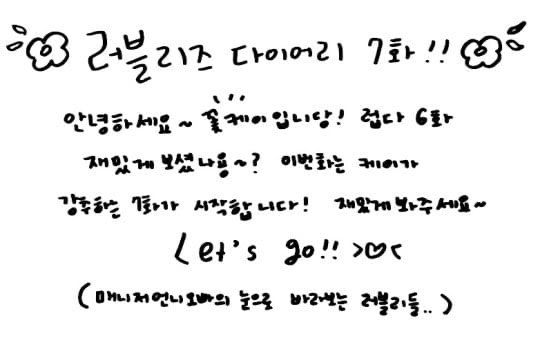 러블리즈 다이어리 7화!!
안녕하세요~ 꽃케이입니당! 럽다 6화
재밌게 보셨나용~? 이번화는 케이가
강추하는 7화가 시작합니다! 재밌게봐주세요~
Let's go!! >♡<
(매니저언니오빠의 눈으로 바라보는 러블리들..)